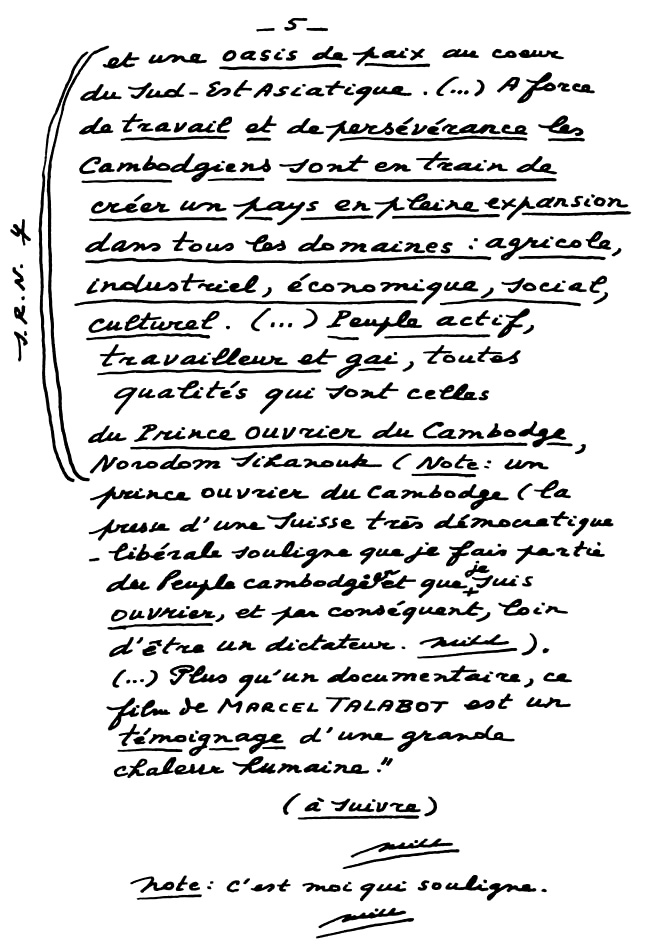 — 5 —
et une oasis de paix au coeur
du Sud-Est Asiatique. (...) A force
de travail et de persévérance les
Cambodgiens sont en train de
créer un pays en pleine expansion
dans tous les domaines : agricole,
industriel, économique, social,
culturel. (...) Peuple actif,
travailleur et gai, toutes
qualités qui sont celles
du Prince ouvrier du Cambodge,
Norodom Sihanouk (Note : un
prince ouvrier du Cambodge (la
presse d'une Suisse très démocratique
- libérale souligne que je fais partie
du Peuple cambodgien et que je suis
ouvrier, et par conséquent, loin
d'être un dictateur.).
(...) Plus qu'un documentaire, ce
film de MARCEL TALABOT est un
témoignage d'une grande
chaleur humaine."
(à suivre)
Note : c'est moi qui souligne.
S. R. N. 4